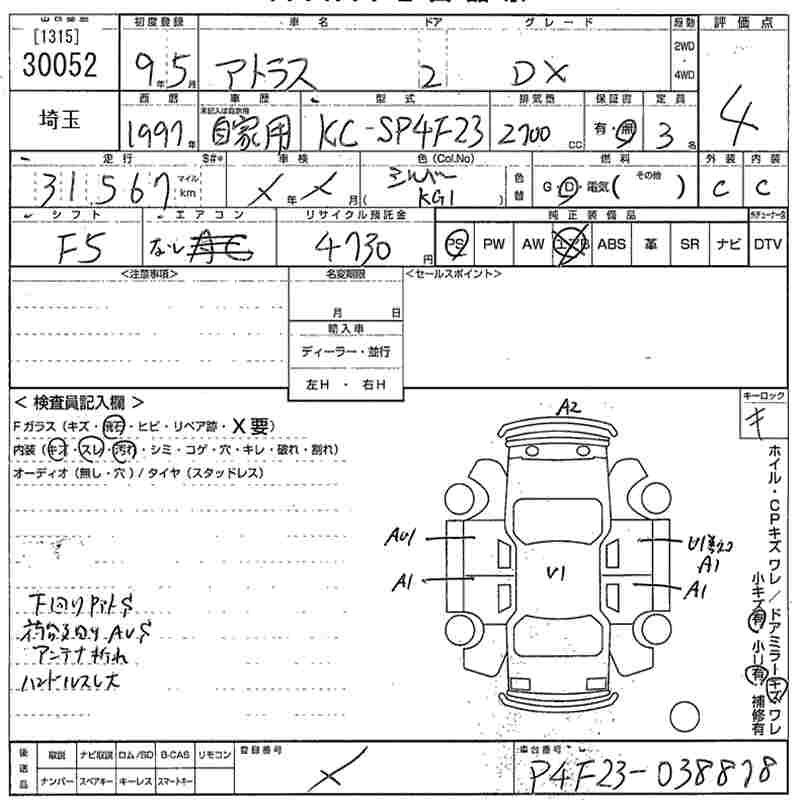 [1315]
30052
初度登録 車名 ドア グレード 駆動 評価点
9年5月 アトラス 2 DX 2WD・4WD 4
埼玉
西暦 車歴 型式 排気量 保証書 定員
未記入は自家用
1997年 自家用 KC-SP4F23 2700cc 有・無 3名
走行 S#* 車検 色(Col.No) 燃料 外装 内装
31,567 マイル km ×年×月 シルバー ( KG1 ) 色替 G・D・電気( その他 ) C C
シフト エアコン リサイクル預託金 純正装備品
F5 なし 4730円 PS PW AW エアB ABS 革 SR ナビ DTV
<注意事項> 名変期限 <セールスポイント>
月 日
輸入車
ディーラー・並行
左H ・ 右H
< 検査員記入欄 > キーロック
キ
Fガラス(キズ・飛石・ヒビ・リペア跡・X要)
内装(キズ・スレ・汚れ・シミ・コゲ・穴・キレ・破れ・割れ)
オーディオ(無し・穴)/タイヤ(スタッドレス)
A2
AU1
A1
V1
A1
A1
下回りPitS
アンテナ折れ
ハンドルスレ大
ホイル・CPキズ ワレ/ドアミラーキズ ワレ
小キズ有 小U有 補修有
後送品 取説 ナビ取説 ロム/SD B-CAS リモコン 登録番号 車台番号
ナンバー スペアキー キーレス スマートキー × P4F23-038878